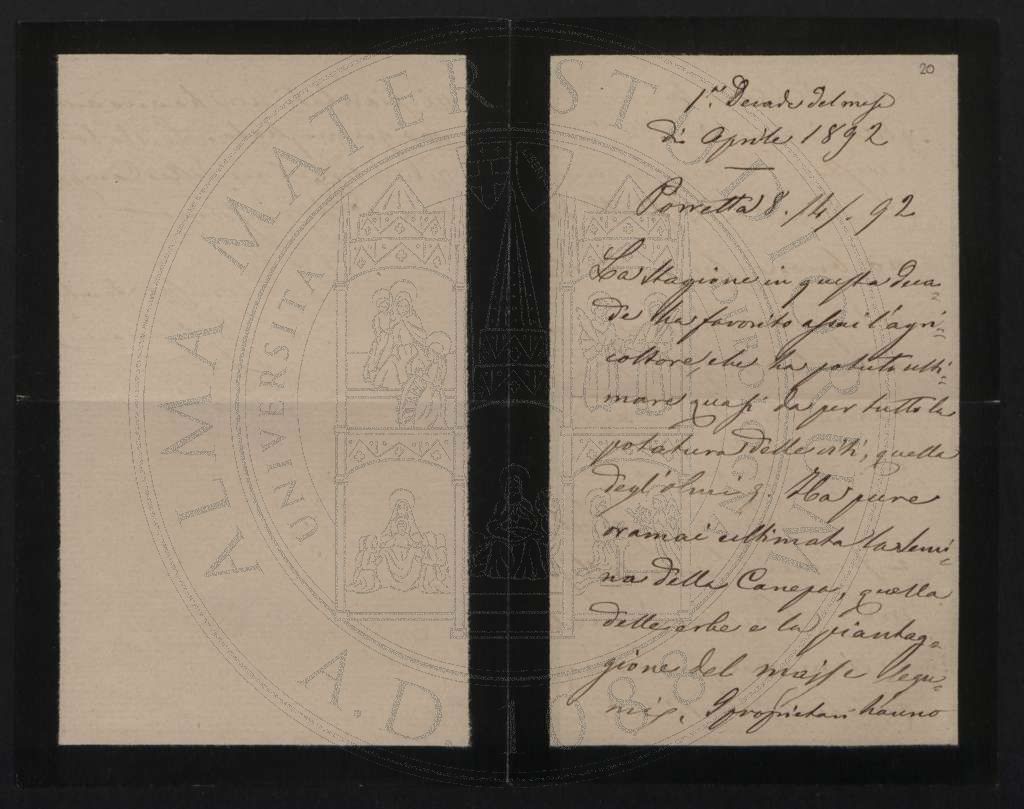 20
1.ª Decade del mese
di Aprile 1892
Porretta 8./4/. 92
La Stagione in questa deca=
de ha favorito assai l'agri=
coltore, che ha potuto ulti=
mare quasi da per tutto la
potatura delle viti, quella
degl'olmi. Ha pure
oramai ultimata la semi=
na della Canepa, quella
delle erbe e la piantag=
gione del
I proprietari hanno
ALMA MATER STUDIORUM
UNIVERSITA
A.D. 1088